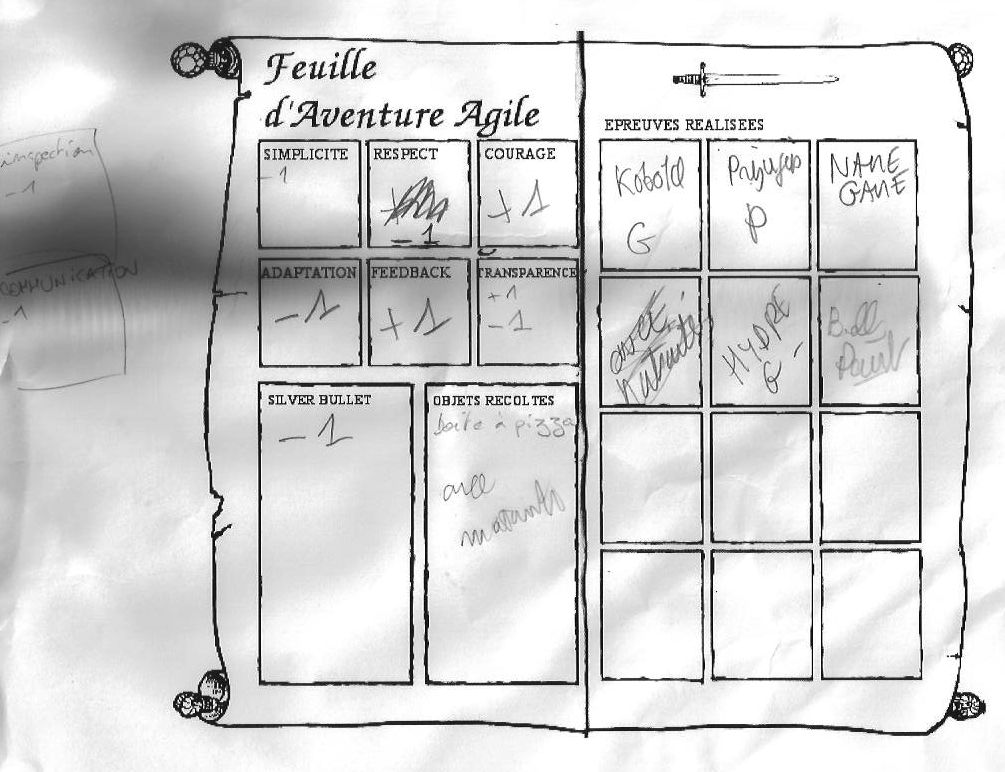 Feuille
d'Aventure Agile
inspection
-1
COMMUNICATION
-1
SIMPLICITE
-1
RESPECT
-1
COURAGE
+1
ADAPTATION
-1
FEEDBACK
+1
TRANSPARENCE
+1
-1
SILVER BULLET
-1
OBJETS RECOLTES
boite à pizza
EPREUVES REALISEES
Kobold
G
P
NAME
GAME
HYDRE
G -
Ball
Point